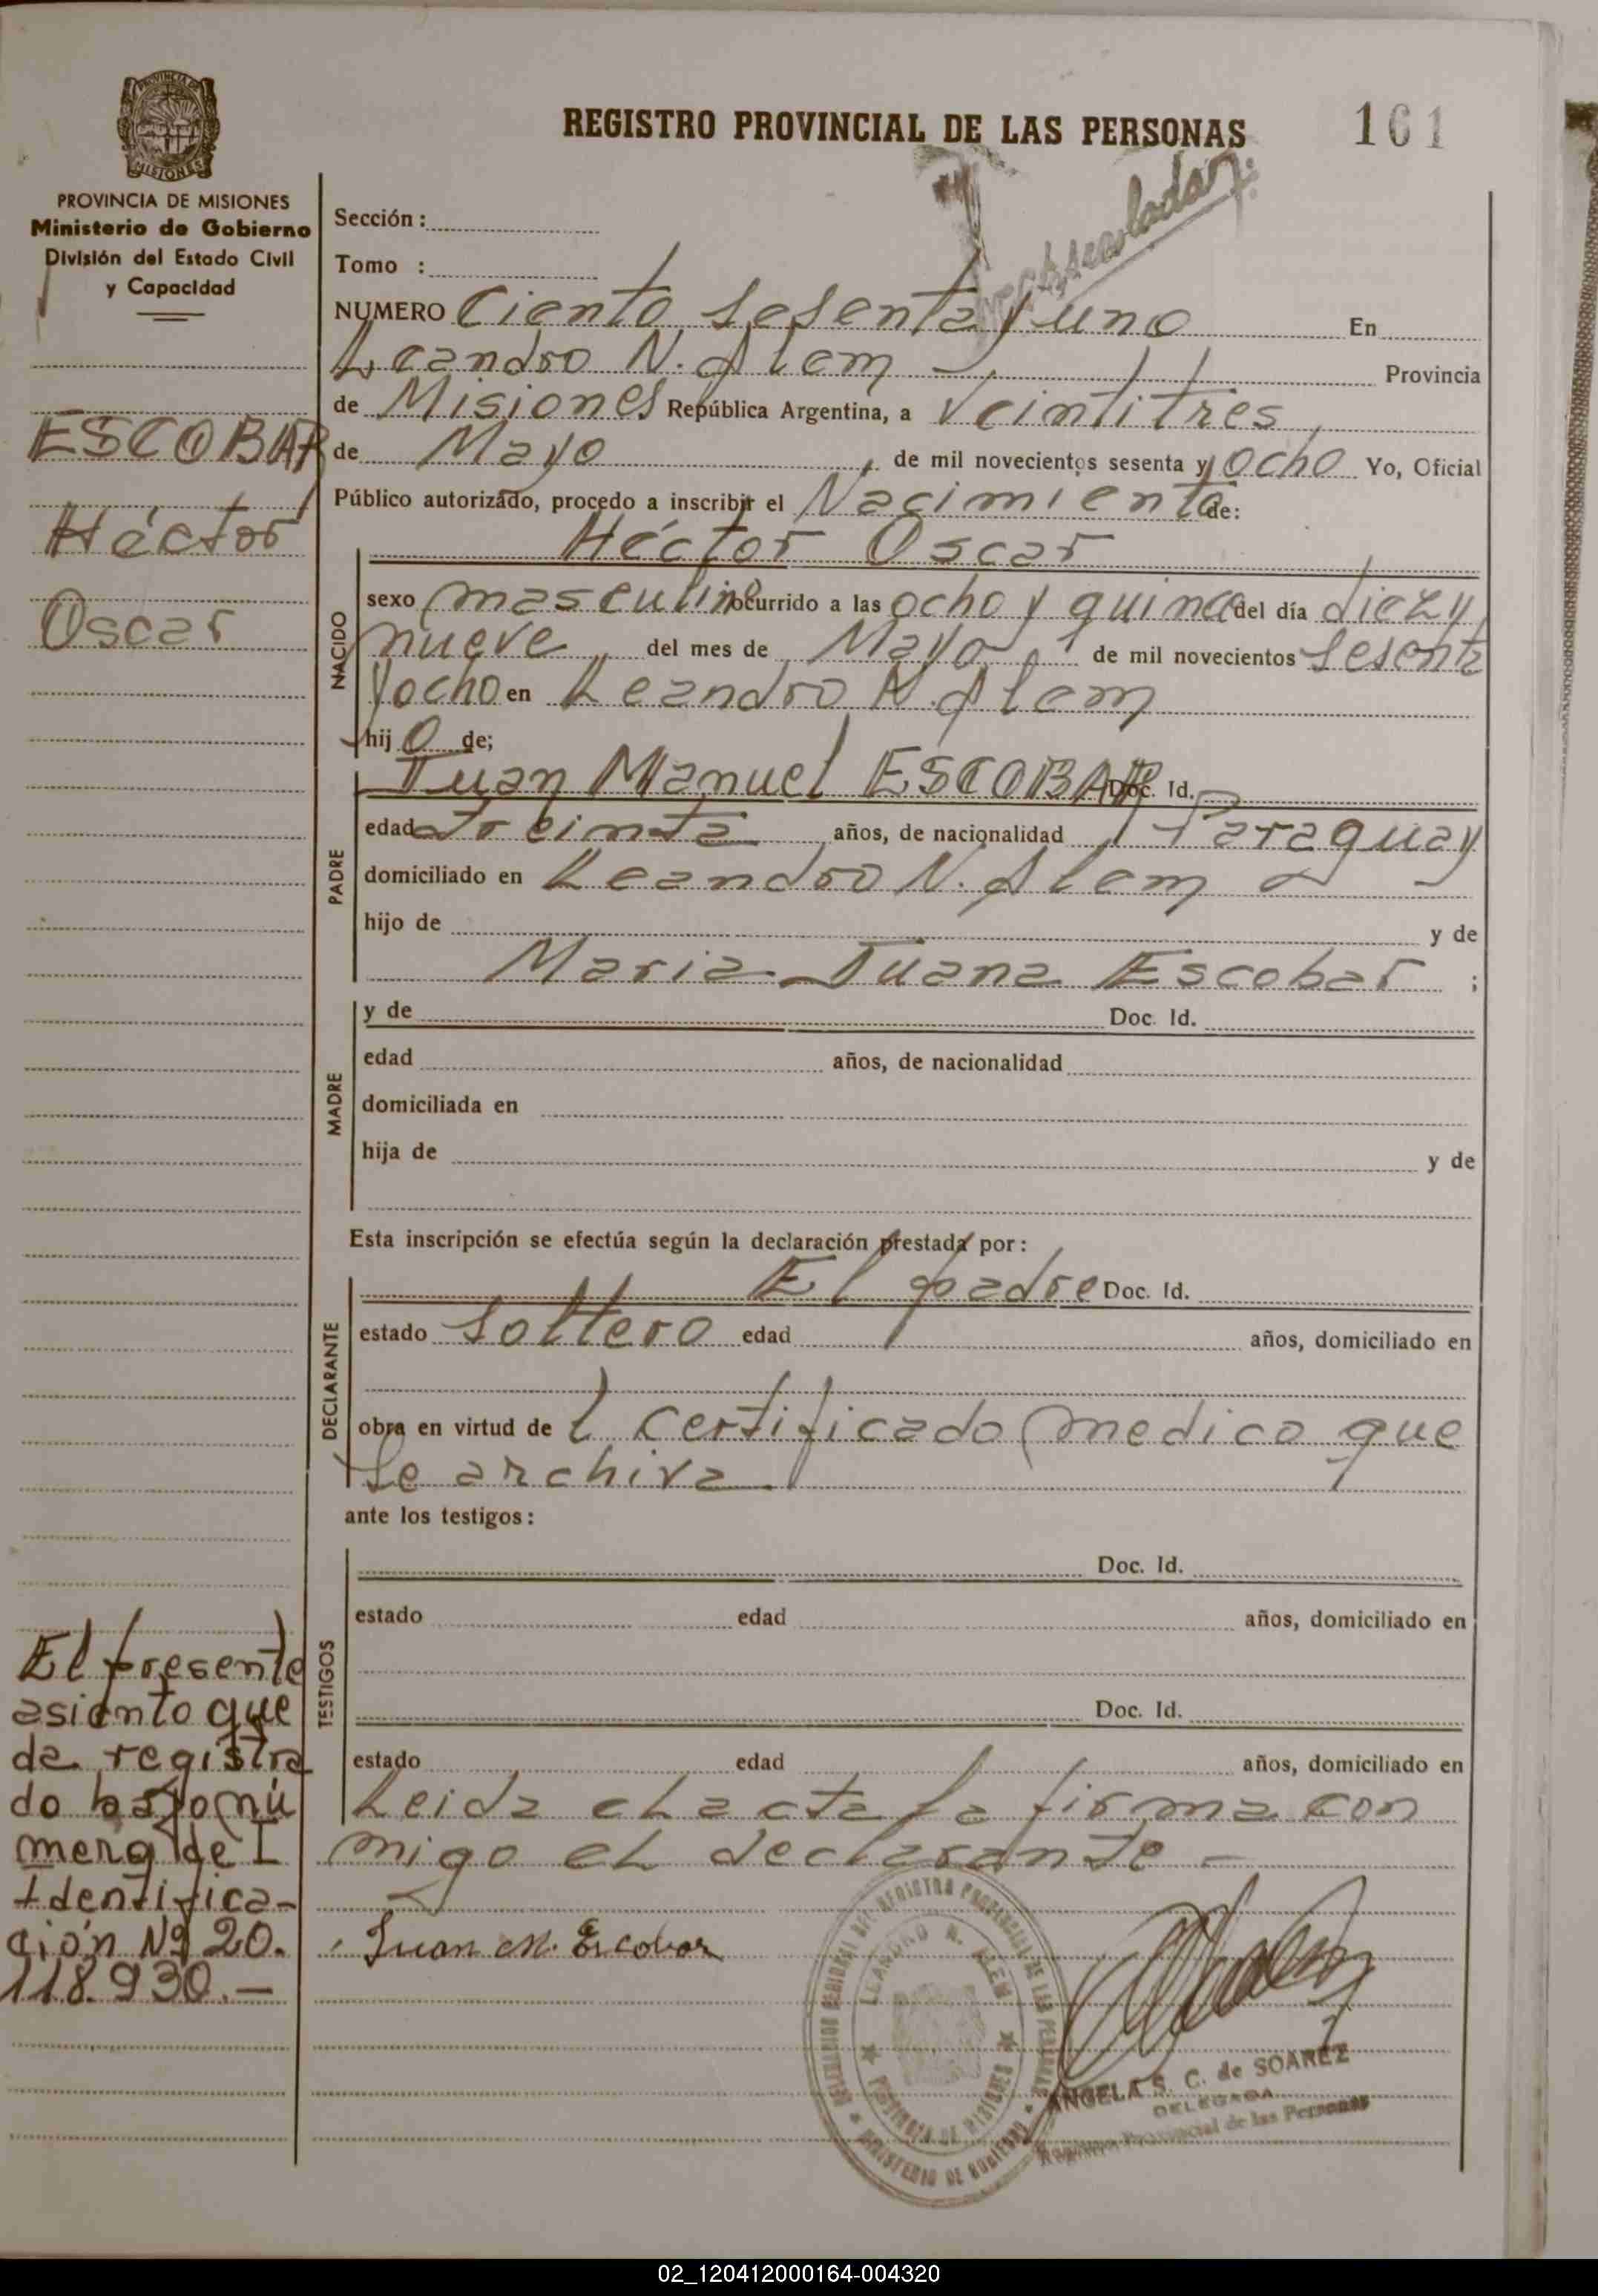 REGISTRO PROVINCIAL DE LAS PERSONAS
161
PROVINCIA DE
MISIONES
PROVINCIA DE MISIONES
Ministerio de Gobierno
División del Estado Civil
y Capacidad
ESCOBAR
Héctor
Oscar
El presente
asiento que
da registra
do bajo nú
mero de I
Identifica-
ción Nº 20.
118.930.-
Sección :
Tomo :
NUMERO Ciento sesenta y uno En
Leandro N. Alem Provincia
de Misiones República Argentina, a Veintitres
de Mayo de mil novecientos sesenta y ocho Yo, Oficial
Público autorizado, procedo a inscribir el Nacimiento de:
NACIDO
Héctor Oscar
sexo masculino ocurrido a las ocho y quince del día diez y
nueve del mes de Mayo de mil novecientos sesenta
y ocho en Leandro N. Alem
hij o de;
PADRE
Juan Manuel ESCOBAR Doc. Id.
edad treinta años, de nacionalidad Paraguay
domiciliado en Leandro N. Alem
hijo de y de
Maria Juana Escobar ;
MADRE
y de Doc. Id.
edad años, de nacionalidad
domiciliada en
hija de y de
Esta inscripción se efectúa según la declaración prestada por :
DECLARANTE
El padre Doc. Id.
estado soltero edad años, domiciliado en
obra en virtud de l certificado medico que
se archiva
ante los testigos :
TESTIGOS
Doc. Id.
estado edad años, domiciliado en
Doc. Id.
estado edad años, domiciliado en
Leida el acta la firma con
migo el declarante -
Juan M. Escobar
LEANDRO N. ALEM
PROVINCIA DE MISIONES
MINISTERIO DE GOBIERNO
ANGELA S. C. de SOAREZ
DELEGADA
Registro Provincial de las Personas
02_120412000164-004320